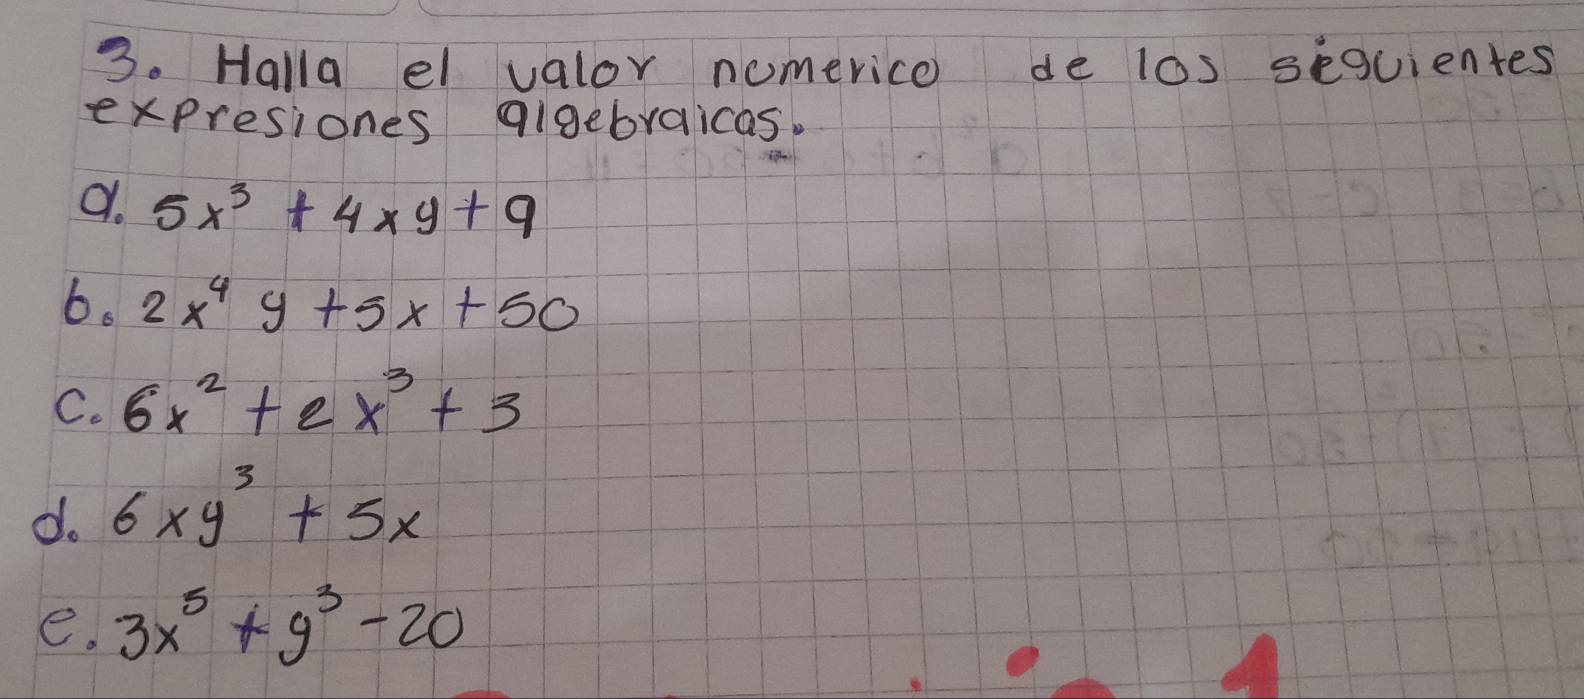 3. Halla el valor numerico de los siguientes
expresiones algebraicas.
a. 5x³ + 4xy + 9
b. 2x⁴y + 5x + 50
c. 6x² + 2x³ + 3
d. 6xy³ + 5x
e. 3x⁵ + y³ - 20